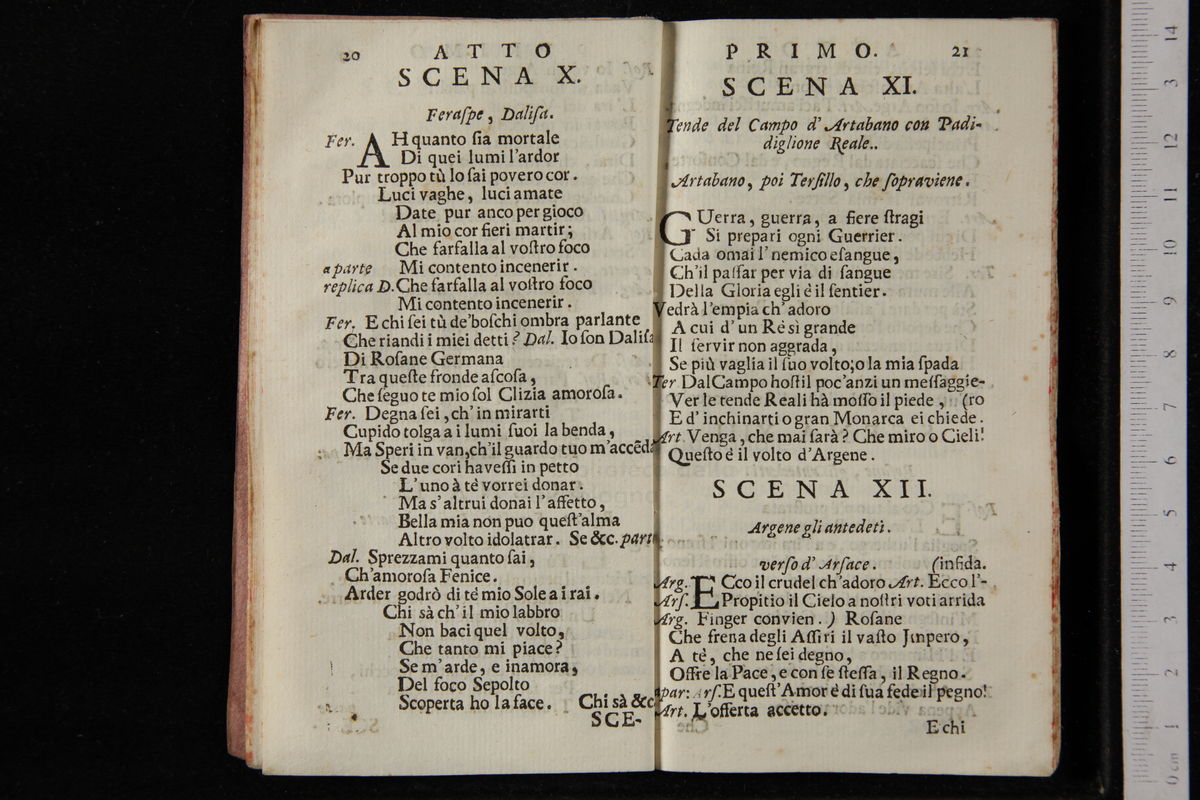 20 ATTO
SCENA X.
Feraſpe, Daliſa.
Fer. AH quanto ſia mortale
Di quei lumi l'ardor
Pur troppo tù lo ſai povero cor.
Luci vaghe, luci amate
Date pur anco per gioco
Al mio cor fieri martir;
Che farfalla al voſtro foco
a parte Mi contento incenerir.
replica D. Che farfalla al voſtro foco
Mi contento incenerir.
Fer. E chi ſei tù de'boſchi ombra parlante
Che riandi i miei detti? Dal. Io ſon Daliſa
Di Roſane Germana
Tra queſte fronde aſcoſa,
Che ſeguo te mio ſol Clizia amoroſa.
Fer. Degna ſei, ch'in mirarti
Cupido tolga a i lumi ſuoi la benda,
Ma Speri in van, ch'il guardo tuo m'accēda
Se due cori haveſſi in petto
L'uno à tè vorrei donar.
Ma s'altrui donai l'affetto,
Bella mia non puo queſt'alma
Altro volto idolatrar. Se &c. parte
Dal. Sprezzami quanto ſai,
Ch'amoroſa Fenice.
Arder godrò di tè mio Sole a i rai.
Chi sà ch'il mio labbro
Non baci quel volto,
Che tanto mi piace?
Se m'arde, e inamora,
Del foco Sepolto
Scoperta ho la face. Chi sà &c
SCE-
PRIMO. 21
SCENA XI.
Tende del Campo d'Artabano con Padi-
diglione Reale..
Artabano, poi Terſillo, che ſopraviene.
GUerra, guerra, a fiere ſtragi
Si prepari ogni Guerrier.
Cada omai l'nemico eſangue,
Ch'il paſſar per via di ſangue
Della Gloria egli è il ſentier.
Vedrà l'empia ch'adoro
A cui d'un Rè sì grande
Il ſervir non aggrada,
Se più vaglia il ſuo volto; o la mia ſpada
Ter Dal Campo hoſtil poc'anzi un meſſaggie-
Ver le tende Reali hà moſſo il piede, (ro
E d'inchinarti o gran Monarca ei chiede.
Art. Venga, che mai ſarà? Che miro o Cieli!
Queſto è il volto d'Argene.
SCENA XII.
Argene gli antedeti.
verſo d'Arſace. (infida.
Arg. ECco il crudel ch'adoro Art. Ecco l'-
Arſ. Propitio il Cielo a noſtri voti arrida
Arg. Finger convien.) Roſane
Che frena degli Aſſiri il vaſto Impero,
A tè, che ne ſei degno,
Offre la Pace, e con ſe ſteſſa, il Regno.
par: Arſ. E queſt'Amor è di ſua fede il pegno!
Art. L'offerta accetto.
E chi